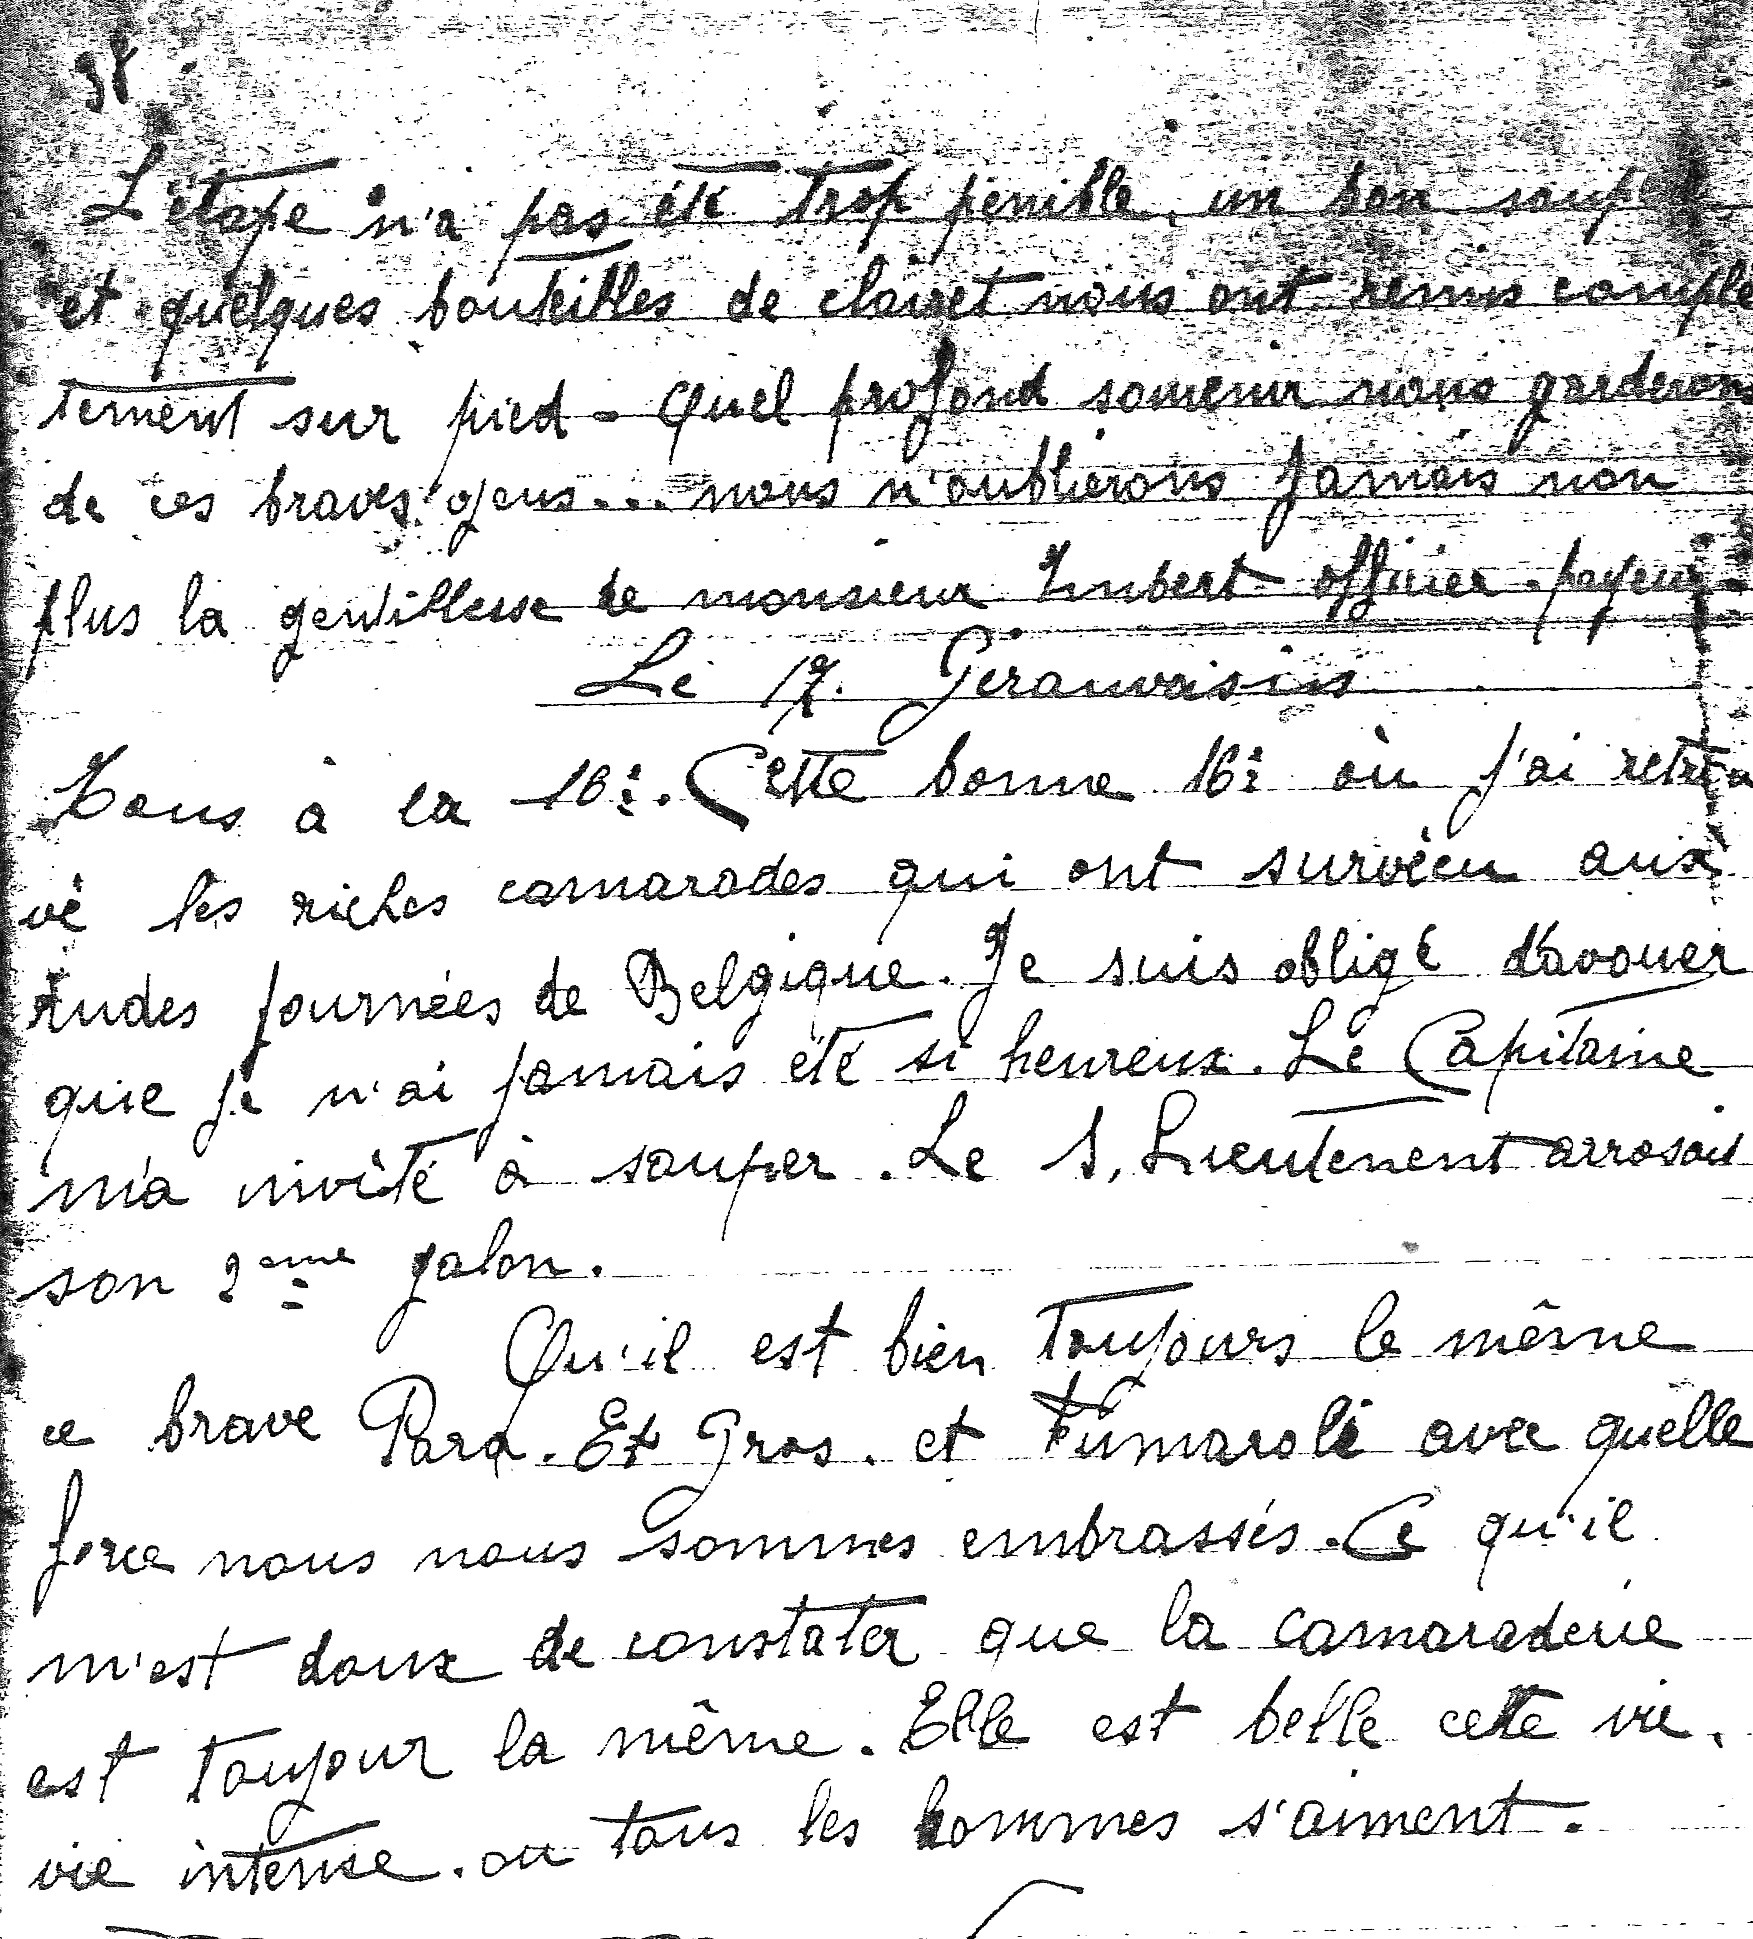 38
L'étape n'a pas été trop pénible, un bon soup
et quelques bouteilles de clairet nous ont remis complè
tement sur pied - Quel profond souvenir nous garderons
de ces braves gens... nous n'oublierons jamais non
plus la gentillesse de monsieur Imbert officier payeur.
Le 17. Gerauvoisins
Tous à la 16è. Cette bonne 16è où j'ai retrou
vé les riches camarades qui ont survécu aux
rudes journées de Belgique. Je suis obligé d'avouer
que je n'ai jamais été si heureux. Le Capitaine
m'a invité à souper. Le S. Lieutenent arrosait
son 2ème galon.
Qu'il est bien toujours le même
ce brave Para. Et Gros. et Fumaroli avec quelle
force nous nous sommes embrassés. Ce qu'il
m'est doux de constater que la camaraderie
est toujour la même. Elle est belle cette vie.
vie intense. ou tous les hommes s'aiment.